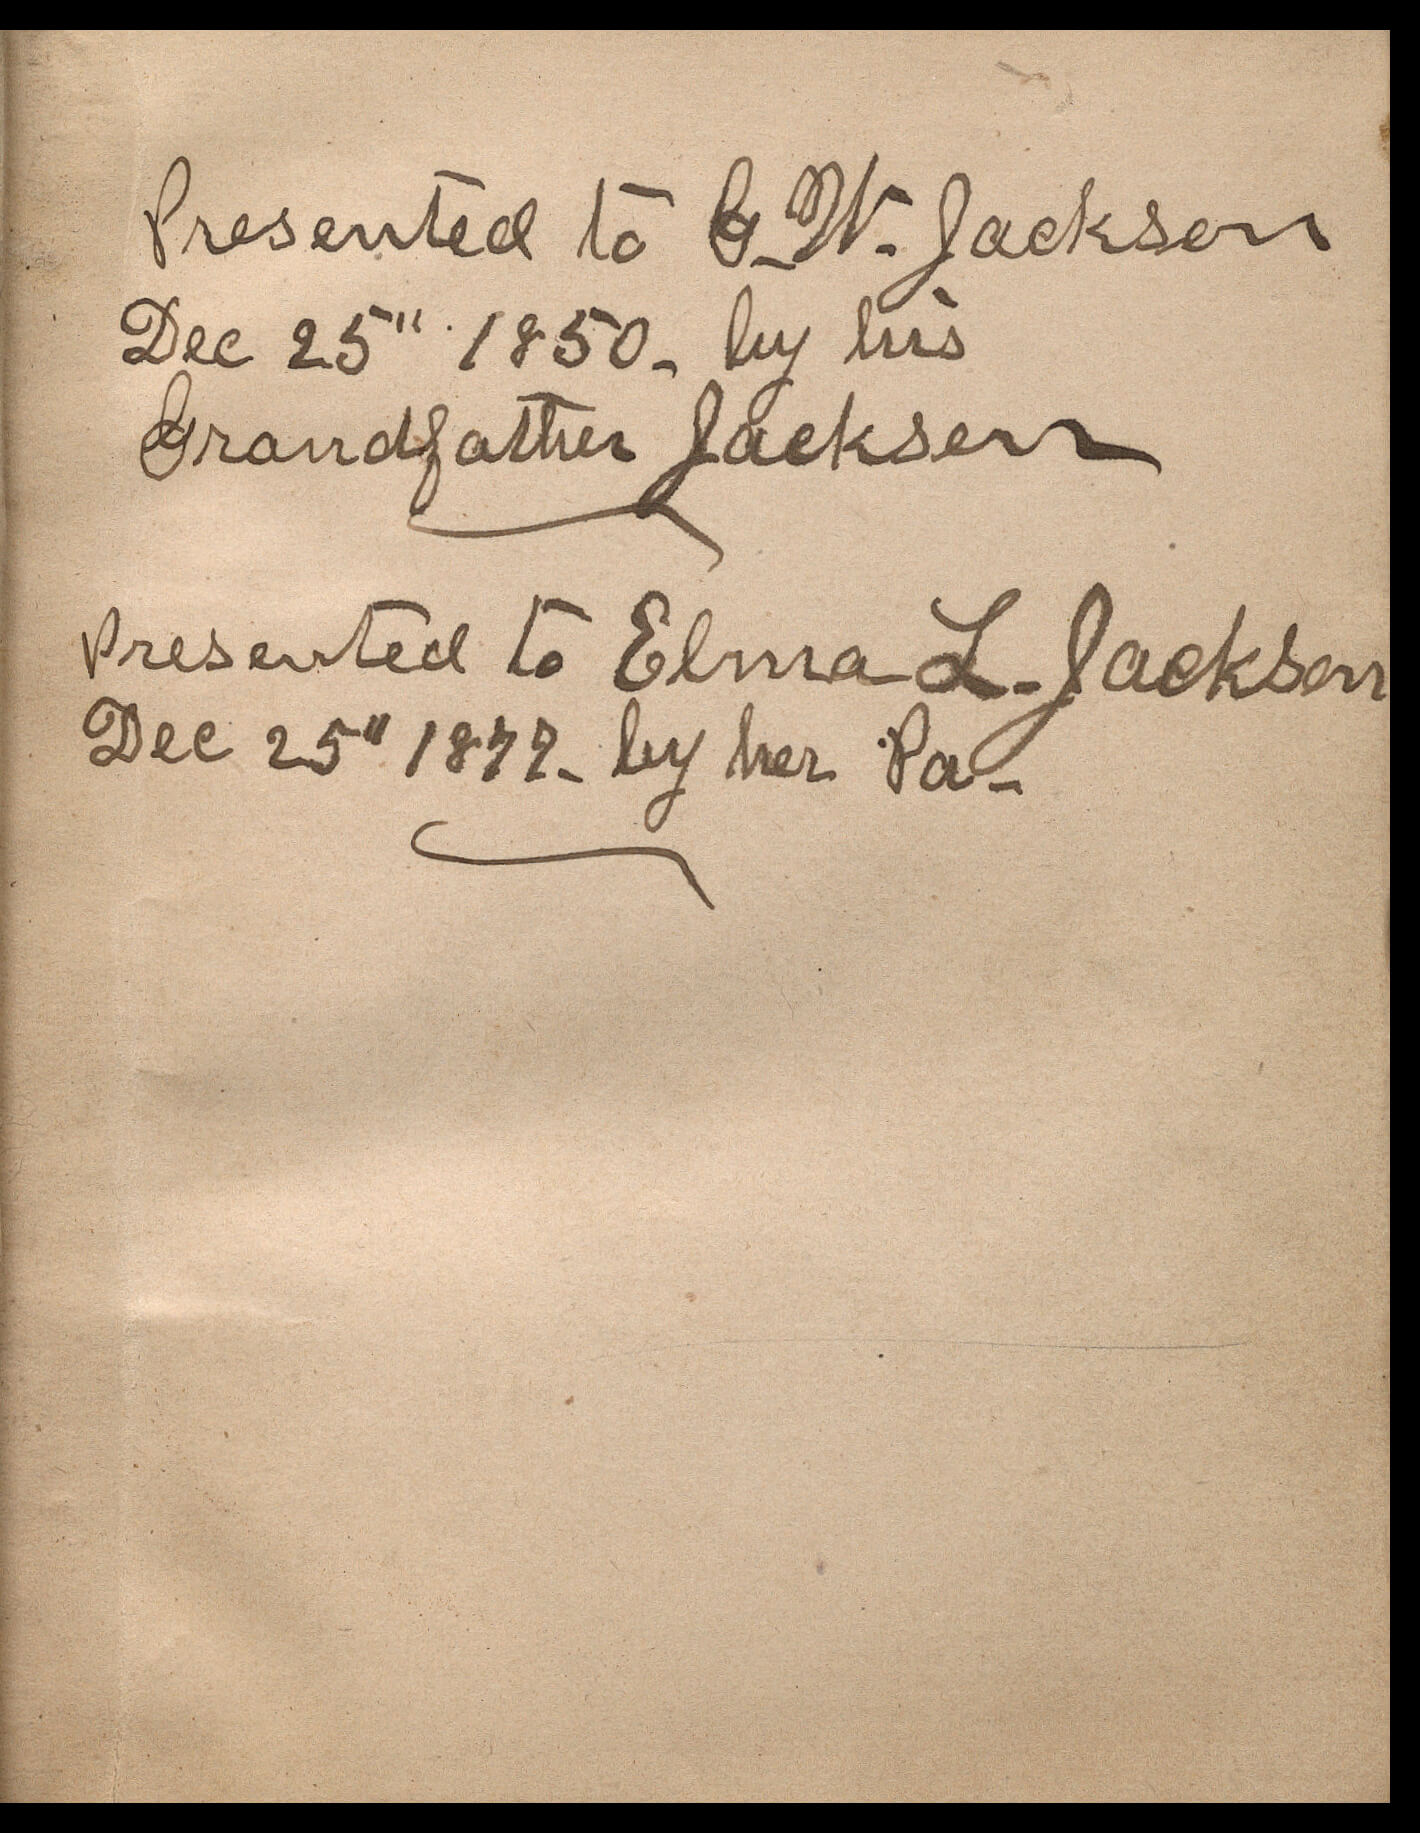 Presented to G. W. Jackson
Dec 25" 1850. by his
Grandfather Jackson
Presented to Elma L. Jackson
Dec 25" 1877. by her Pa.